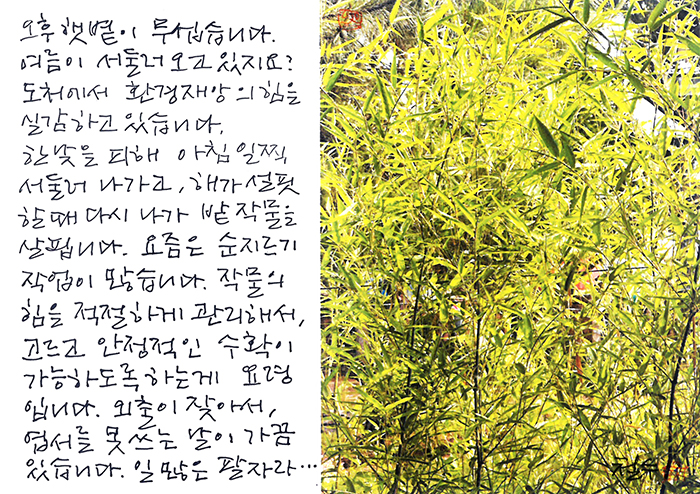 오후 햇볕이 무섭습니다.
여름이 서둘러 오고 있지요?
도처에서 환경재앙의 힘을
실감하고 있습니다.
한낮을 피해 아침 일찍
서둘러 나가고, 해가 설핏
할 때 다시 나가 밭작물을
살핍니다. 요즘은 순지르기
작업이 많습니다. 작물의
힘을 적절하게 관리해서,
고르고 안정적인 수확이
가능하도록 하는게 요령
입니다. 외출이 잦아서,
엽서를 못쓰는 날이 가끔
있습니다. 일 많은 팔자라…